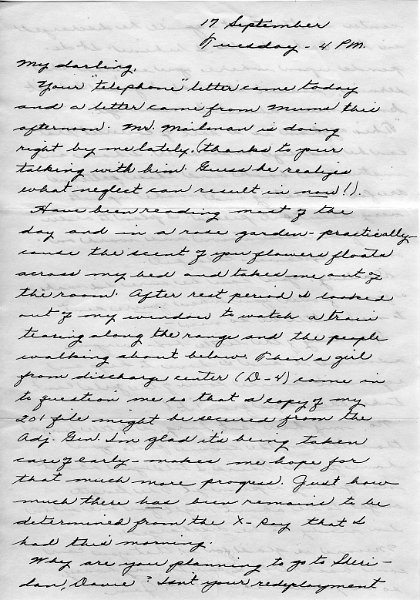 17 September
Tuesday - 4 P.M.
My darling,
Your "telephone" letter came today
and a letter came from Mums this
afternoon. Mr. Mailman is doing
right by me lately. (thanks to your
talking with him. Guess he realizes
what neglect can result in now!).
Have been reading most of the
day and in a rose garden - practically
cause the scent of your flowers floats
across my bed and takes me out of
the room. After rest period I looked
out of my window to watch a train
teasing along the range and the people
walking about below. Then a girl
from discharge center (D-4) came in
to question me so that a copy of my
201 file might be secured from the
Adj. Gen. I'm glad it's being taken
care of early - makes me hope for
that much more progress. Just how
much there has been remains to be
determined from the X-Ray that I
had this morning.
Why are you planning to go to Sheri-
dan, Davie? Isn't your redeployment